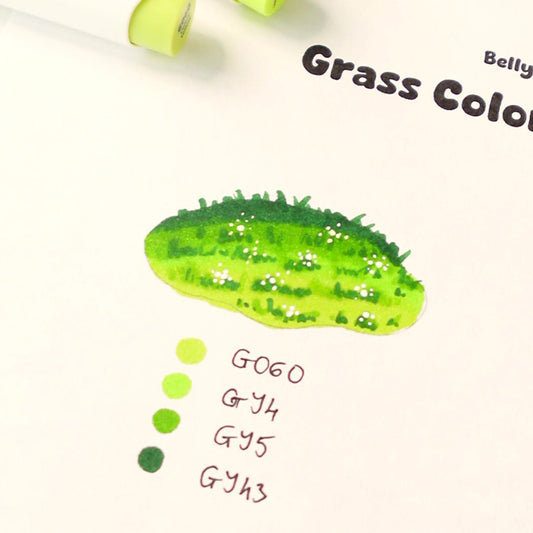 Belly
Grass Color
GO60
GY4
GY5
GY43